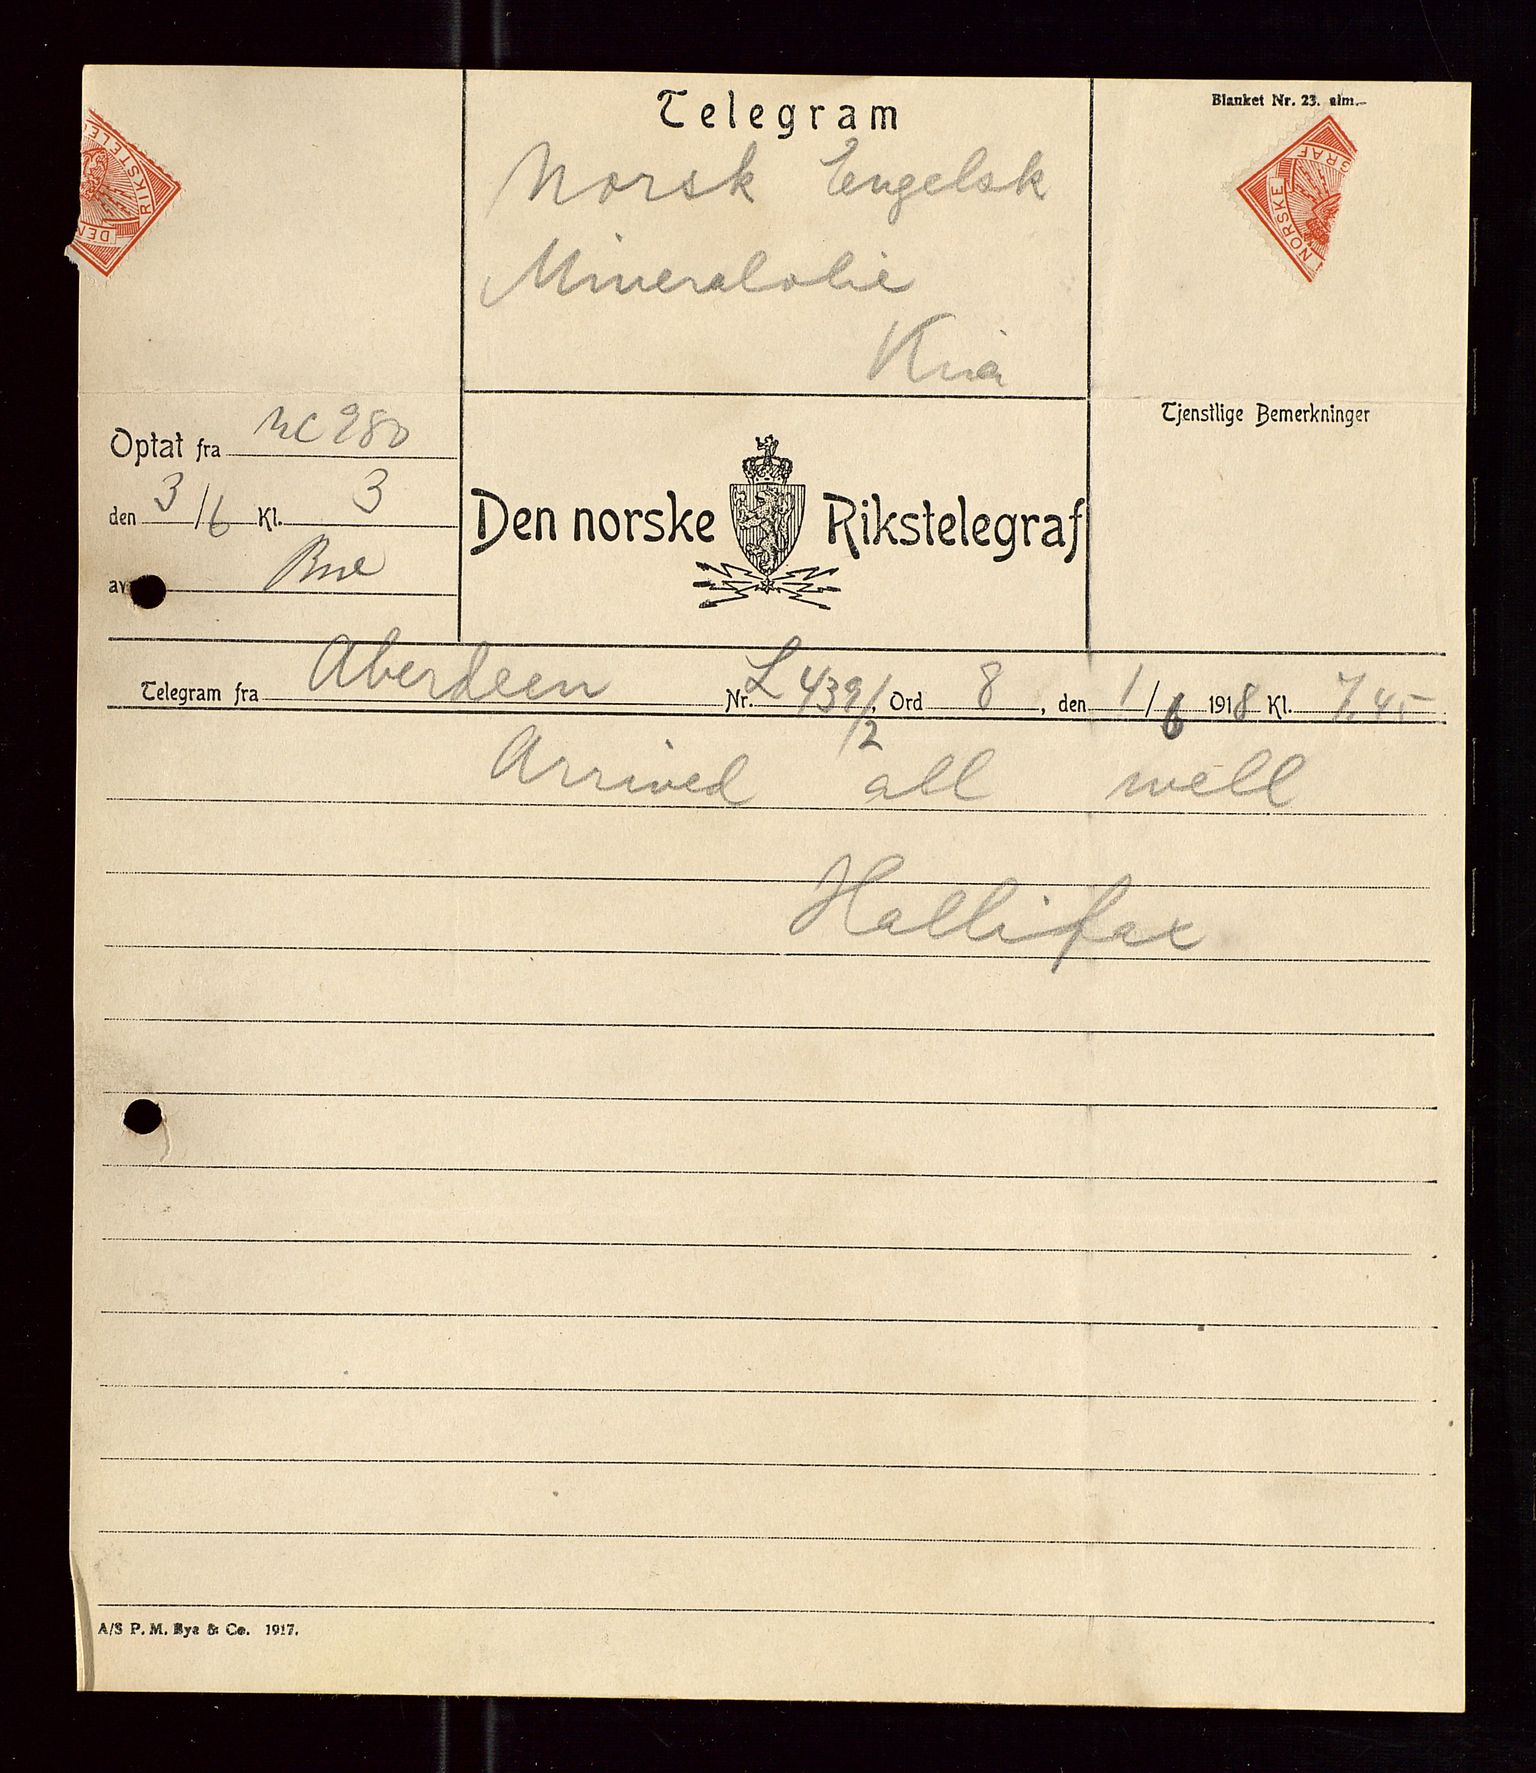 Telegram
Blanket Nr. 23. alm.
Norsk Engelsk
Mineralolie
Kria
DEN
RIKSTELE
NORSKE
GRAF
Optat fra
den 3/6 Kl. 3
av
Den norske Rikstelegraf
Tjenstlige Bemerkninger
Telegram fra Aberdeen Nr. L 439/2, Ord 8, den 1/6 1918 Kl. 7,45
Arrived all well
Hallifax
A/S P. M. Bye & Co. 1917.